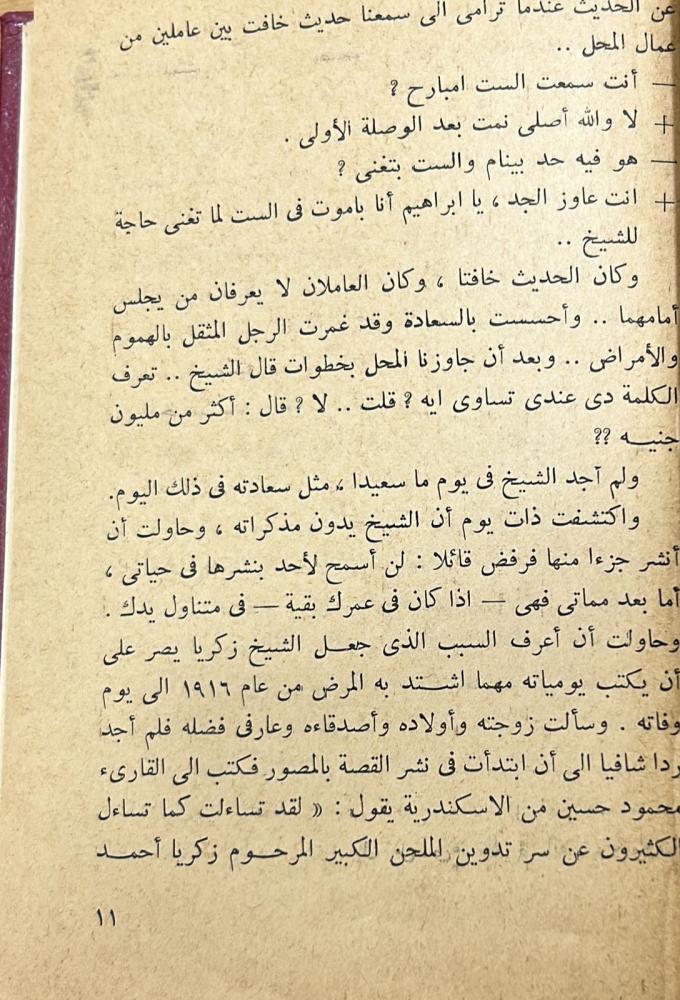 عن الحديث عندما ترامى الى سمعنا حديث خافت بين عاملين من
عمال المحل ..
— أنت سمعت الست امبارح ؟
+ لا والله أصلى نمت بعد الوصلة الأولى .
— هو فيه حد بينام والست بتغنى ؟
+ انت عاوز الجد ، يا ابراهيم أنا باموت فى الست لما تغنى حاجة
للشيخ ..
وكان الحديث خافتا ، وكان العاملان لا يعرفان من يجلس
أمامهما .. وأحسست بالسعادة وقد غمرت الرجل المثقل بالهموم
والأمراض .. وبعد أن جاوزنا المحل بخطوات قال الشيخ .. تعرف
الكلمة دى عندى تساوى ايه ؟ قلت .. لا ؟ قال : أكثر من مليون
جنيــه ؟؟
ولم آجد الشيخ فى يوم ما سعيدا ، مثل سعادته فى ذلك اليوم.
واكتشفت ذات يوم أن الشيخ يدون مذكراته ، وحاولت أن
أنشر جزءا منها فرفض قائلا : لن أسمح لأحد بنشرها فى حياتى ،
أما بعد مماتى فهى — اذا كان فى عمرك بقية — فى متناول يدك .
وحاولت أن أعرف السبب الذى جعــل الشيخ زكريا يصر على
أن يكتب يومياته مهما اشــتد به المرض من عام ١٩١٦ الى يوم
وفاته . وسألت زوجته وأولاده وأصدقاءه وعارفى فضله فلم أجد
ردا شافيا الى أن ابتدأت فى نشر القصة بالمصور فكتب الى القارىء
محمود حسين من الاسكندرية يقول : « لقد تساءلت كما تساءل
الكثيرون عن سر تدوين الملحن الكبير المرحــوم زكريا أحمــد
١١